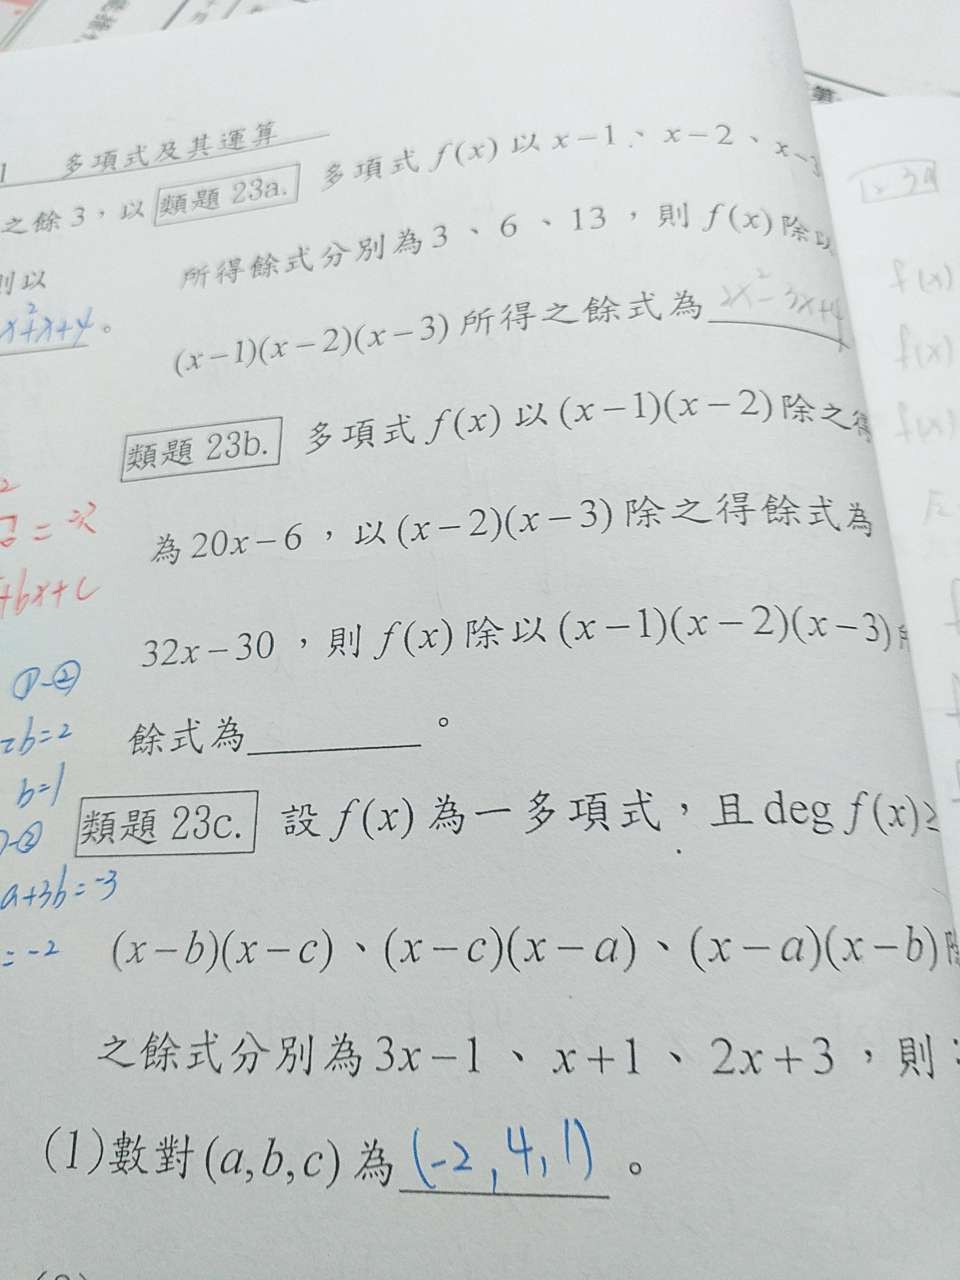 多項式及其運算
之餘3，以
則以
x²+x+4。
類題 23a. 多項式 f(x) 以 x－1、x－2、x－3
所得餘式分別為 3、6、13，則 f(x) 除以
(x－1)(x－2)(x－3) 所得之餘式為 2x²－3x+4
類題 23b. 多項式 f(x) 以 (x－1)(x－2) 除之得
為 20x－6，以 (x－2)(x－3) 除之得餘式為
32x－30，則 f(x) 除以 (x－1)(x－2)(x－3)
餘式為 。
類題 23c. 設 f(x) 為一多項式，且 deg f(x)≥
(x－b)(x－c)、(x－c)(x－a)、(x－a)(x－b)
之餘式分別為 3x－1、x＋1、2x＋3，則
(1)數對 (a,b,c) 為 (-2, 4, 1)。
+bx+c
①-②
b=2
b=1
-②
a+3b=-3
=-2
f(x)
f(x)
f(x)